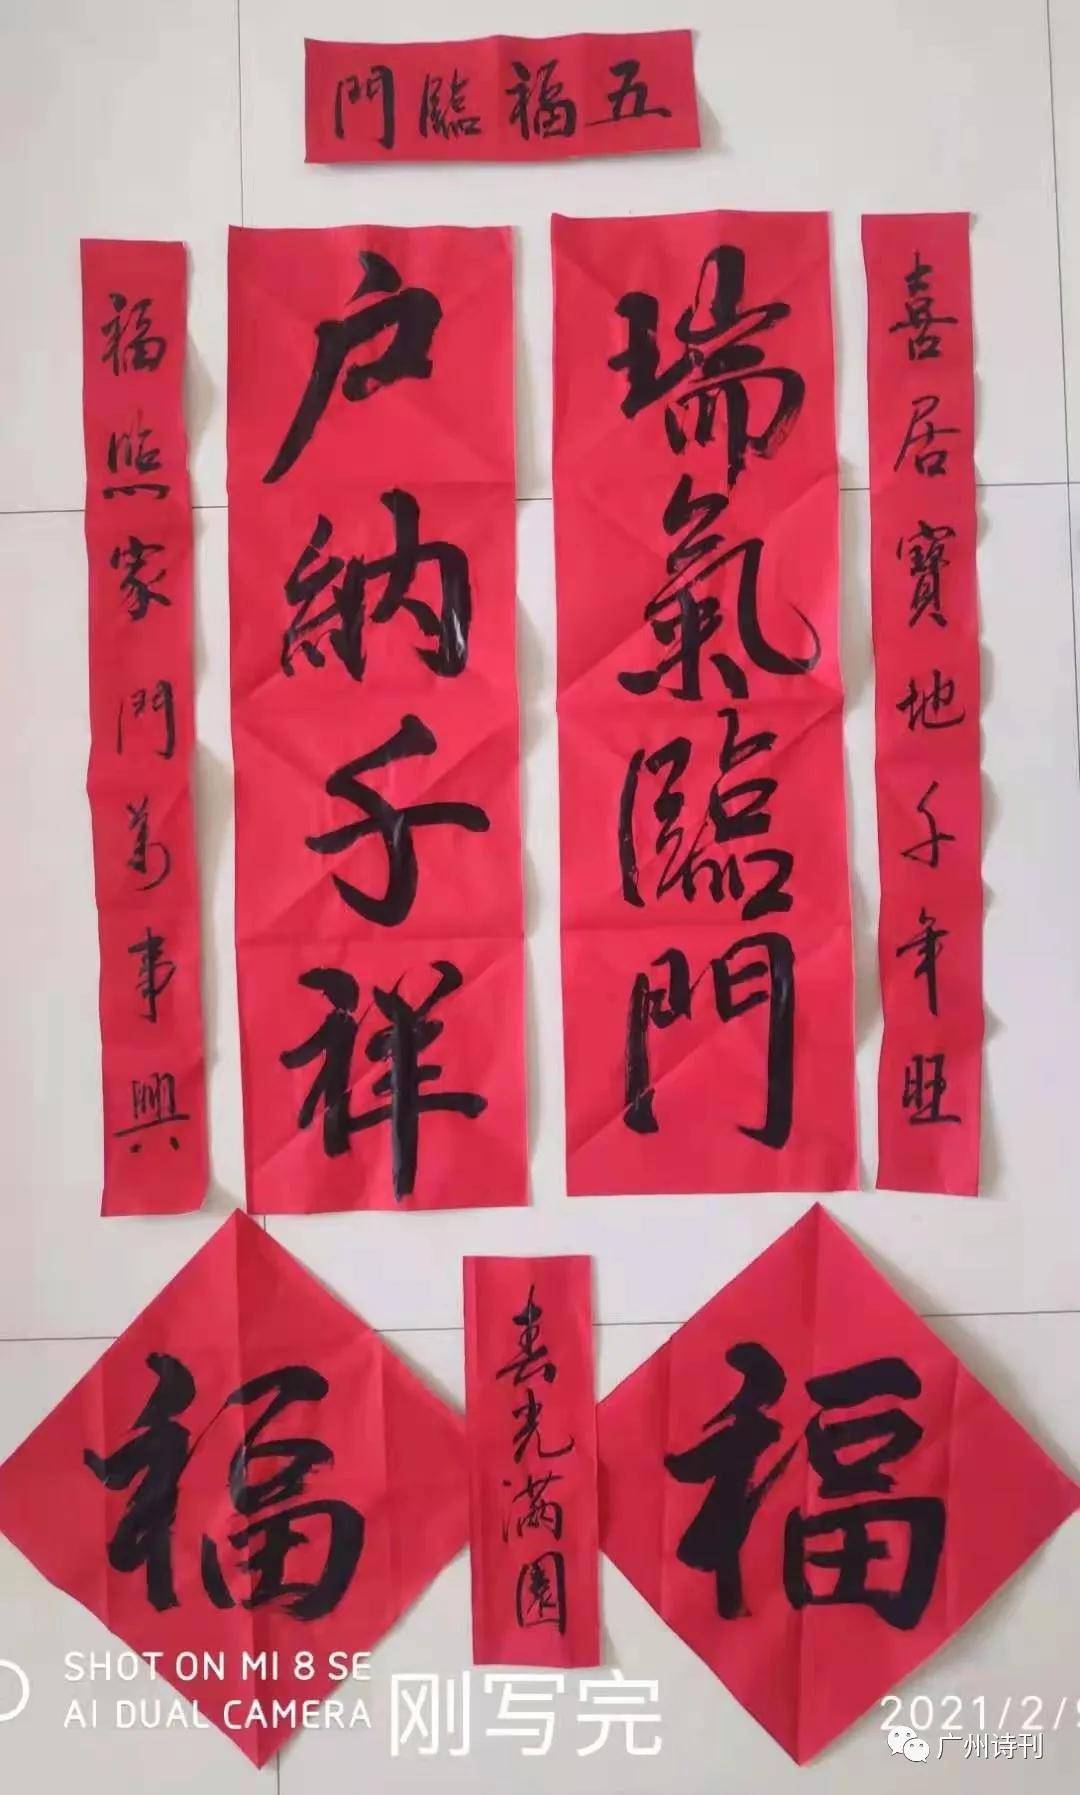 五福臨門
喜居寶地千年旺
瑞氣臨門
户納千祥
福照家門萬事興
福
春光滿園
福
SHOT ON MI 8 SE
AI DUAL CAMERA
刚写完
2021/2/9
广州诗刊